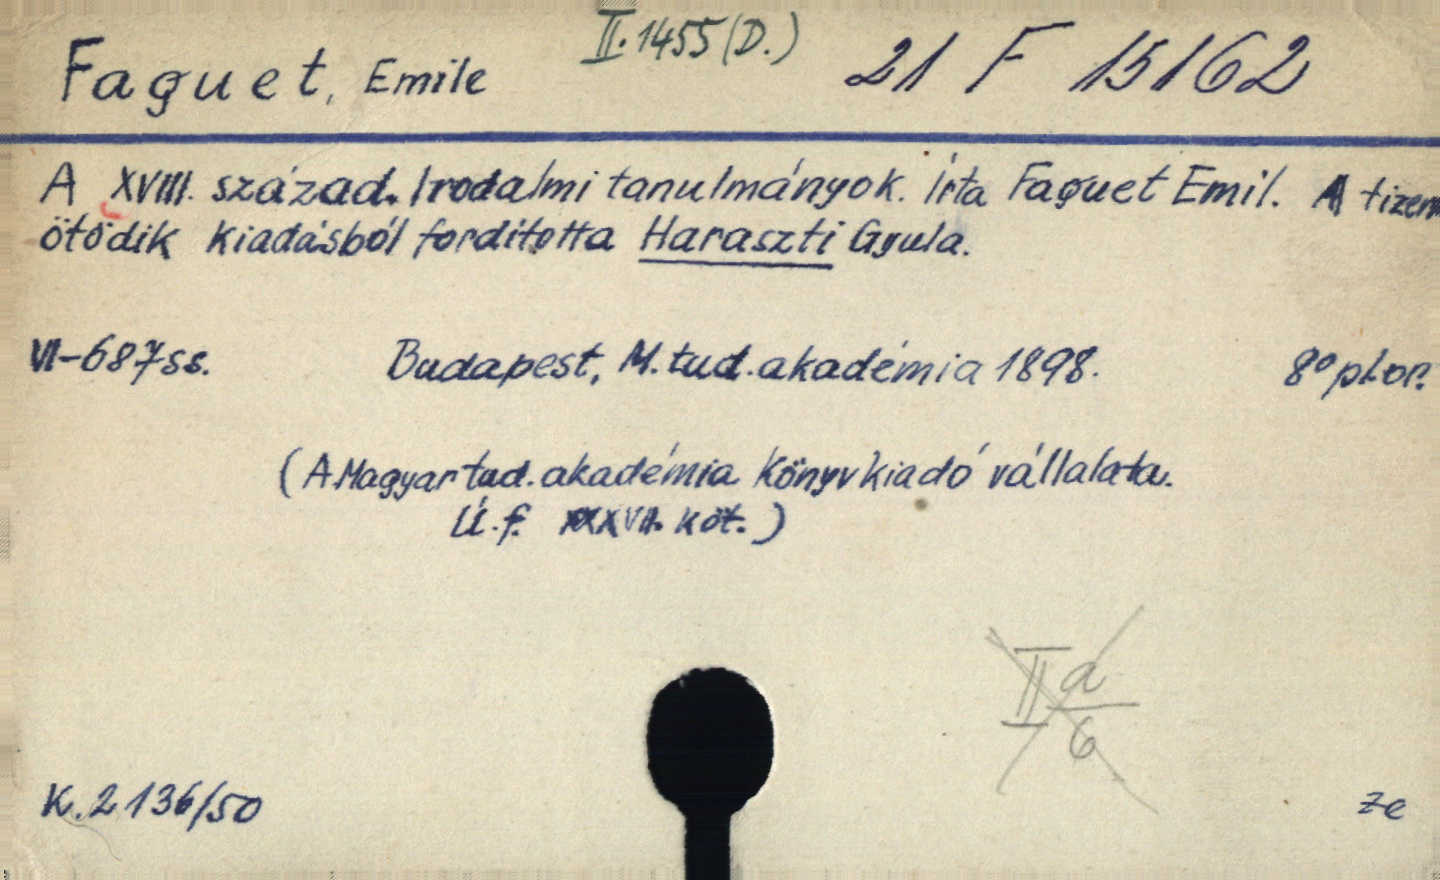 II. 1455 (D.)
Faguet, Emile
21 F 15162
A XVIII. század. Irodalmi tanulmányok. Írta Faguet Emil. A tizen
ötödik kiadásból fordította Haraszti Gyula.
VI-687 ss.
Budapest, M. tud. akadémia 1898.
8° pl. or.
(A Magyar tud. akadémia Könyvkiadó vállalata.
Ú. f. köt.)
II a/6
K. 2136/50
ze